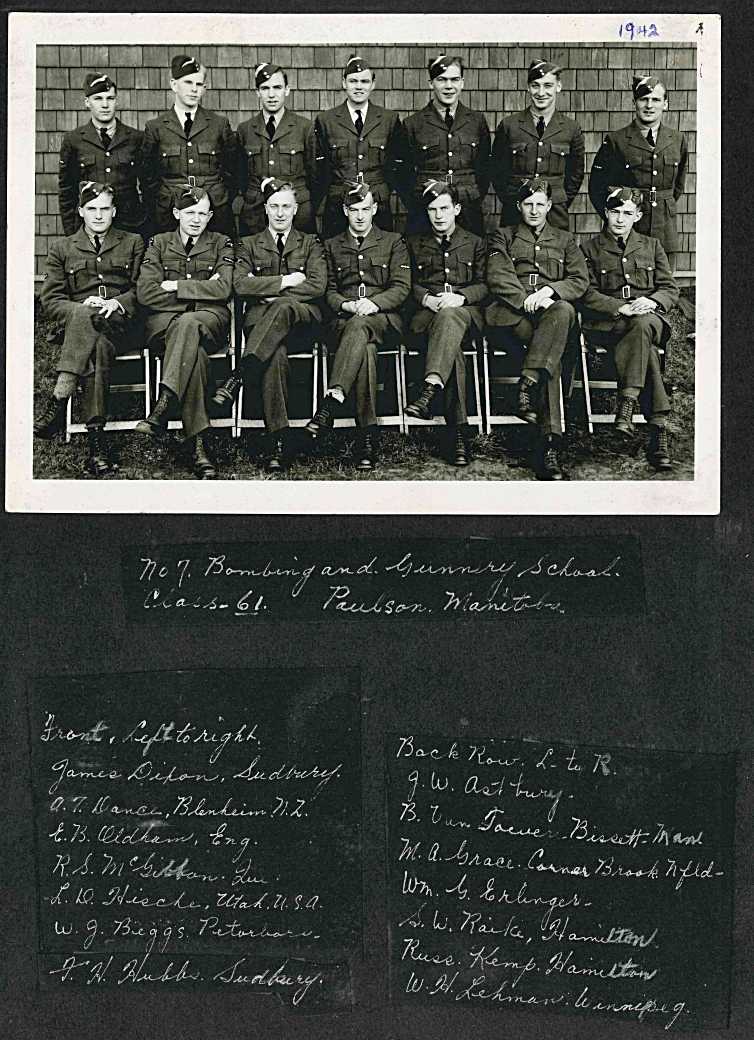 1942
No 7. Bombing and. Gunnery School.
Class - 61. Paulson. Manitoba
Front, Left to right.
James Dixon, Sudbury.
A. T. Dance, Blenheim. N.Z.
E. B. Oldham, Eng.
R. S. McGibbon. Que
L. D. Hische, Utah, U.S.A.
W. J. Bieggs. Peterboro -
F. H. Hubbs. Sudbury.
Back Row. L - to R.
J. W. Astbury -
B. Van Toever - Bissett - Man
M. A. Grace - Corner Brook Nfld -
Wm. G. Erlinger -
S. W. Raike, Hamilton.
Russ. Kemp. Hamilton
W. H. Lehman. Winnipeg.